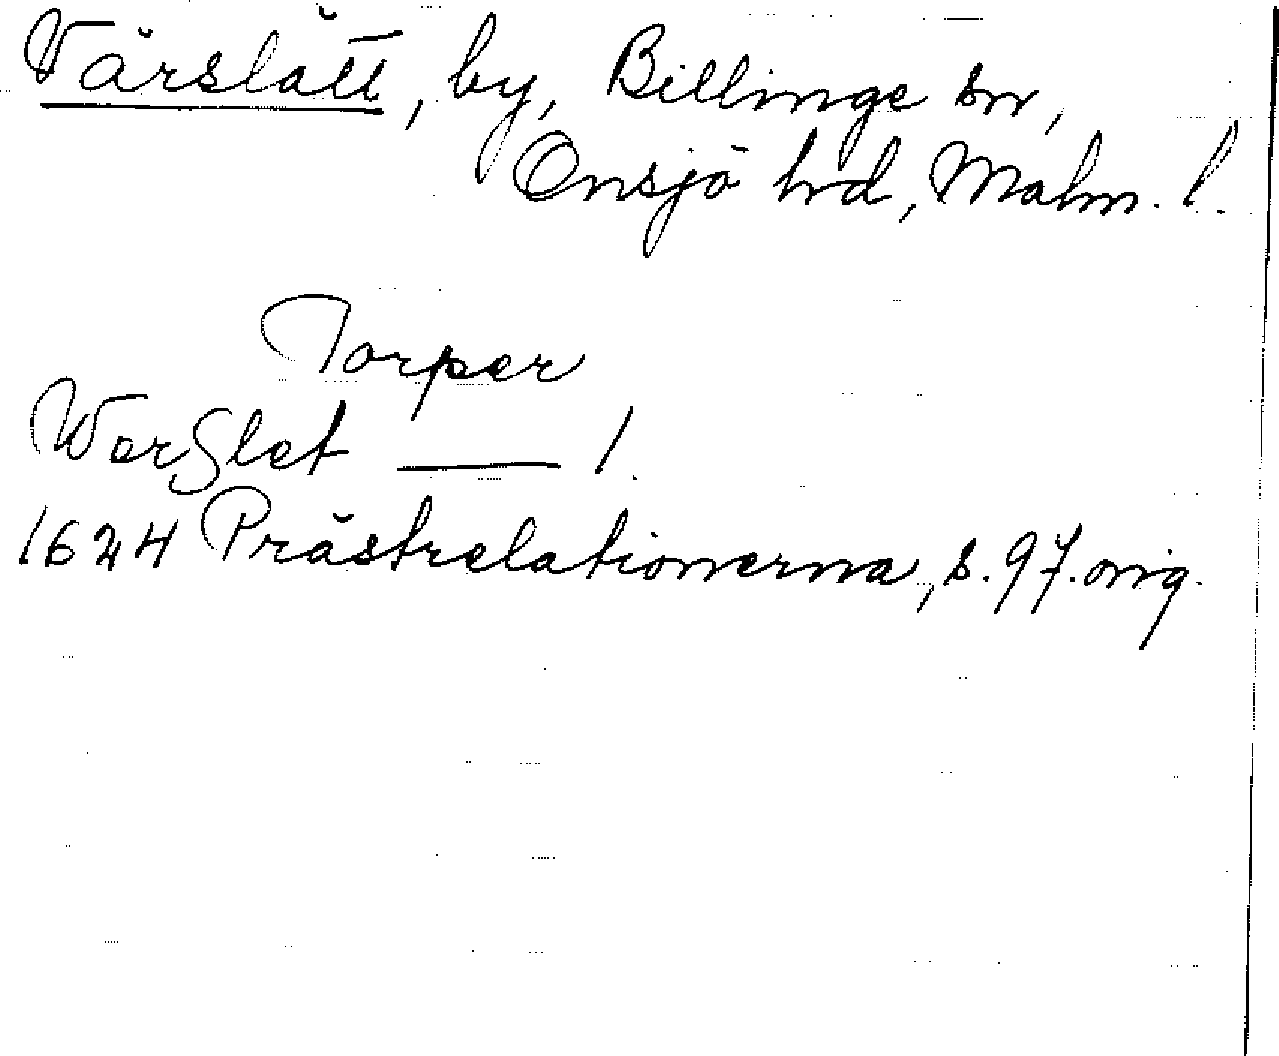 Värslätt, by, Billinge sn,
Onsjö hd, Malm. l.
Torper
WerSlet — 1.
1624 Prästrelationerna, s. 97. orig.